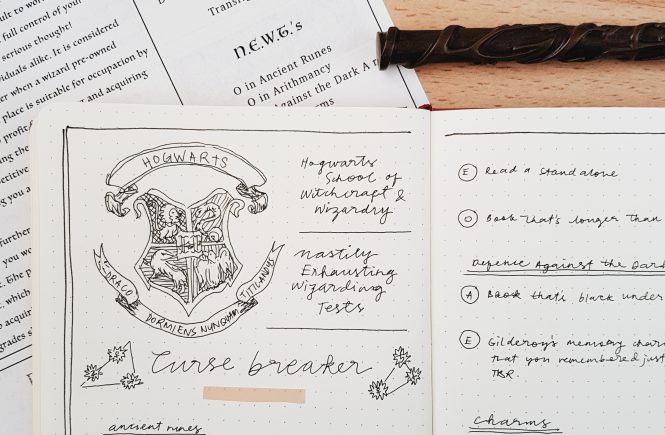 ult to wo
full control of your
serious thought!
viduals alike. It is considered
er when a wizard pre-owned
place is suitable for occupation by
to profit
and acquiring
ing the
petitive
ng you a
further
you wo
t. The p
t. which
to acquiri
grades s
Transfig
N.E.W.T.'s
O in Ancient Runes
O in Arithmancy
Against the Dark A
HOGWARTS
DRACO
DORMIENS NUNQUAM
TITILANDUS
Hogwarts
School of
Witchcraft &
Wizardry
Nastily
Exhausting
Wizarding
Tests
Curse breaker
ancient runes
E Read a standalone
O Book that's longer than
Defence Against the Dark
A Book that's black under
E Gilderoy's memory charm
that you remembered just
TBR.
Charms